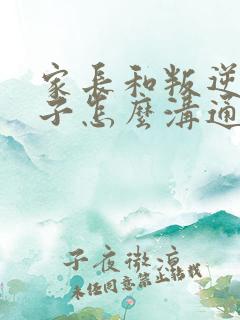 家長和叛逆
子怎麼溝通
子夜微涼
未經同意禁止轉載